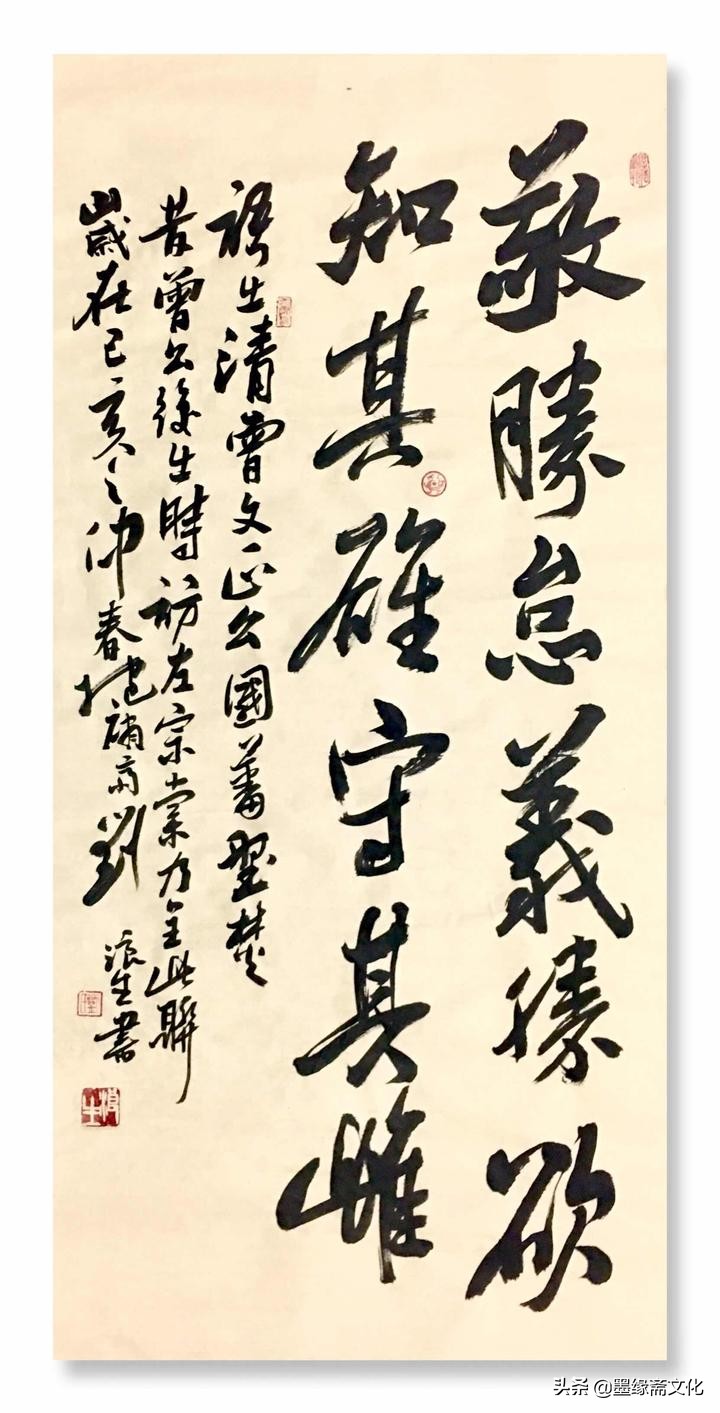 敬勝怠義勝欲
知其雄守其雌
語出清曾文正公國藩
昔曾公後生時訪左宗棠此聯
歲在己亥之仲春齋劉浪生書
头条 @墨缘斋文化